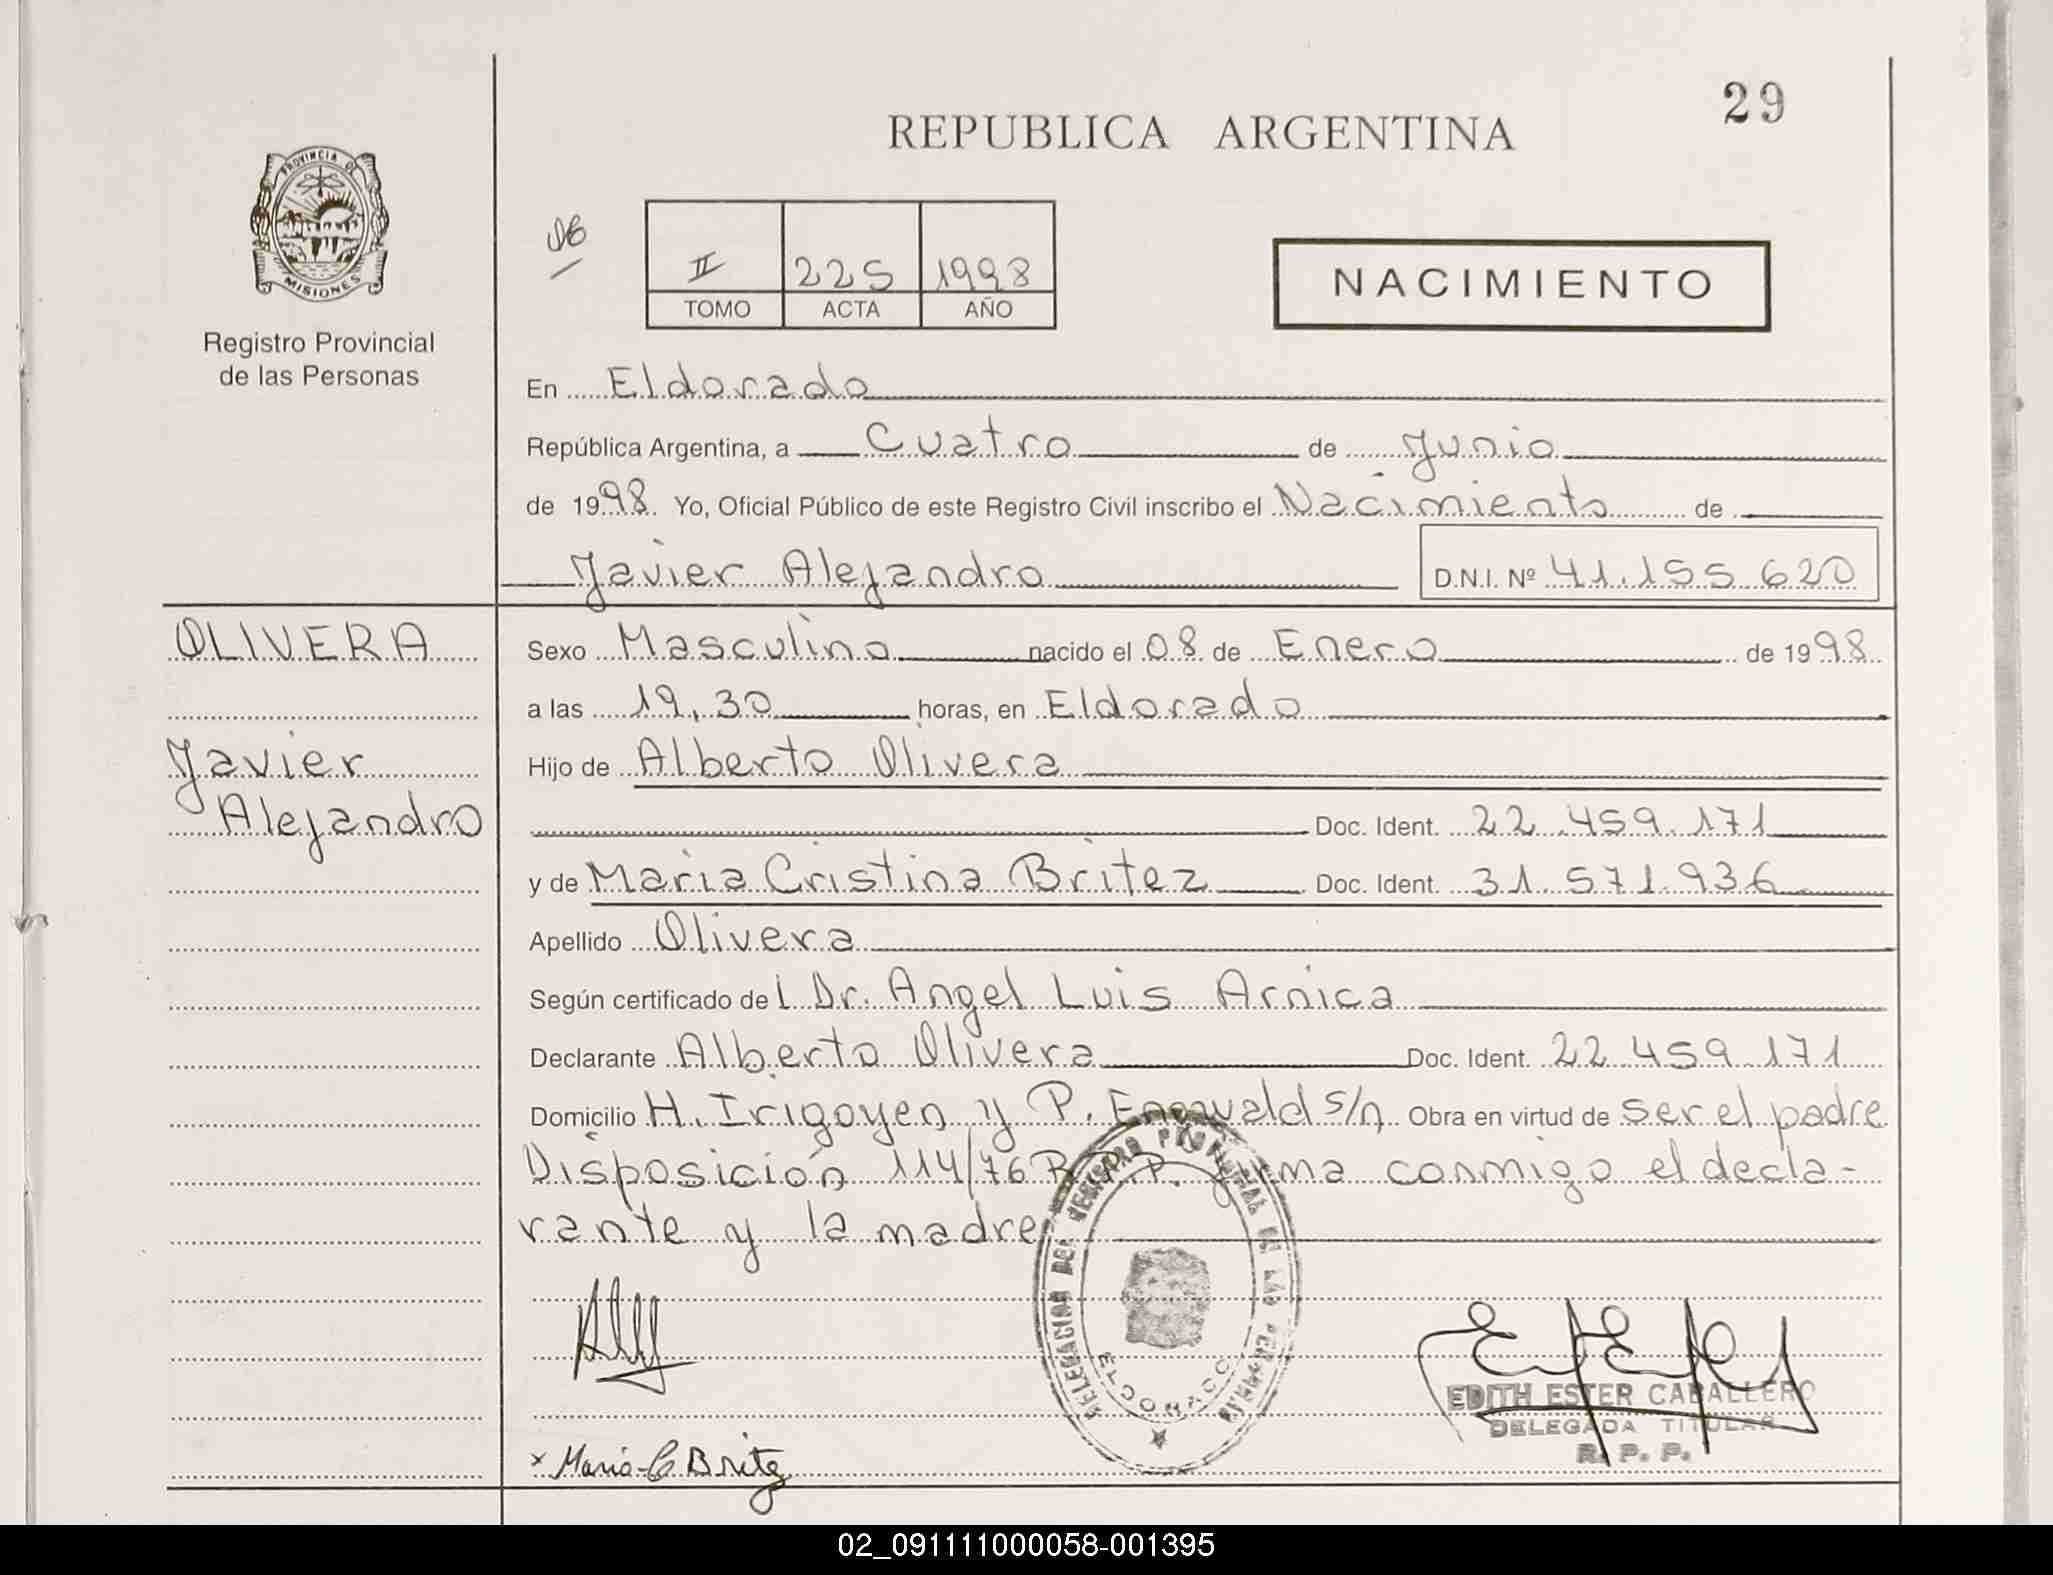 29
REPUBLICA ARGENTINA
PROVINCIA DE
MISIONES
Registro Provincial
de las Personas
II 225 1998
TOMO ACTA AÑO
NACIMIENTO
En Eldorado
República Argentina, a Cuatro de Junio
de 1998. Yo, Oficial Público de este Registro Civil inscribo el Nacimiento de
Javier Alejandro D.N.I. Nº 41.155.620
OLIVERA
Javier
Alejandro
Sexo Masculino nacido el 08 de Enero de 1998
a las 19,30 horas, en Eldorado
Hijo de Alberto Olivera
Doc. Ident. 22.459.171
y de Maria Cristina Britez Doc. Ident. 31.571.936
Apellido Olivera
Según certificado del Dr. Angel Luis Arnica
Declarante Alberto Olivera Doc. Ident. 22.459.171
Domicilio H. Irigoyen y P. s/n Obra en virtud de ser el padre
Disposición 114/76 R.P.P. firma conmigo el decla-
rante y la madre
DELEGACION DEL REGISTRO PROVINCIAL DE LAS PERSONAS
ELDORADO
EDITH ESTER CABALLERO
DELEGADA TITULAR
R. P. P.
x Maria C Britez
02_091111000058-001395